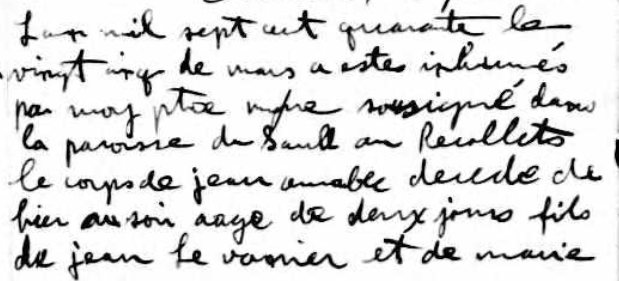 Lan mil sept cent quarante le
vingt cinq de mars a estes inhumés
par moy ptre sousigné dans
la paroisse du Sault au Recollets
le corps de jean amable decede de
hier au soir aage de deux jours fils
de jean Le vanier et de marie